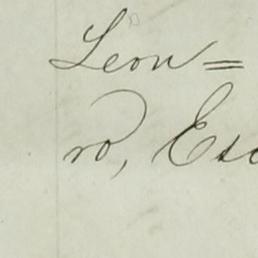 Leon=
ro, Esc